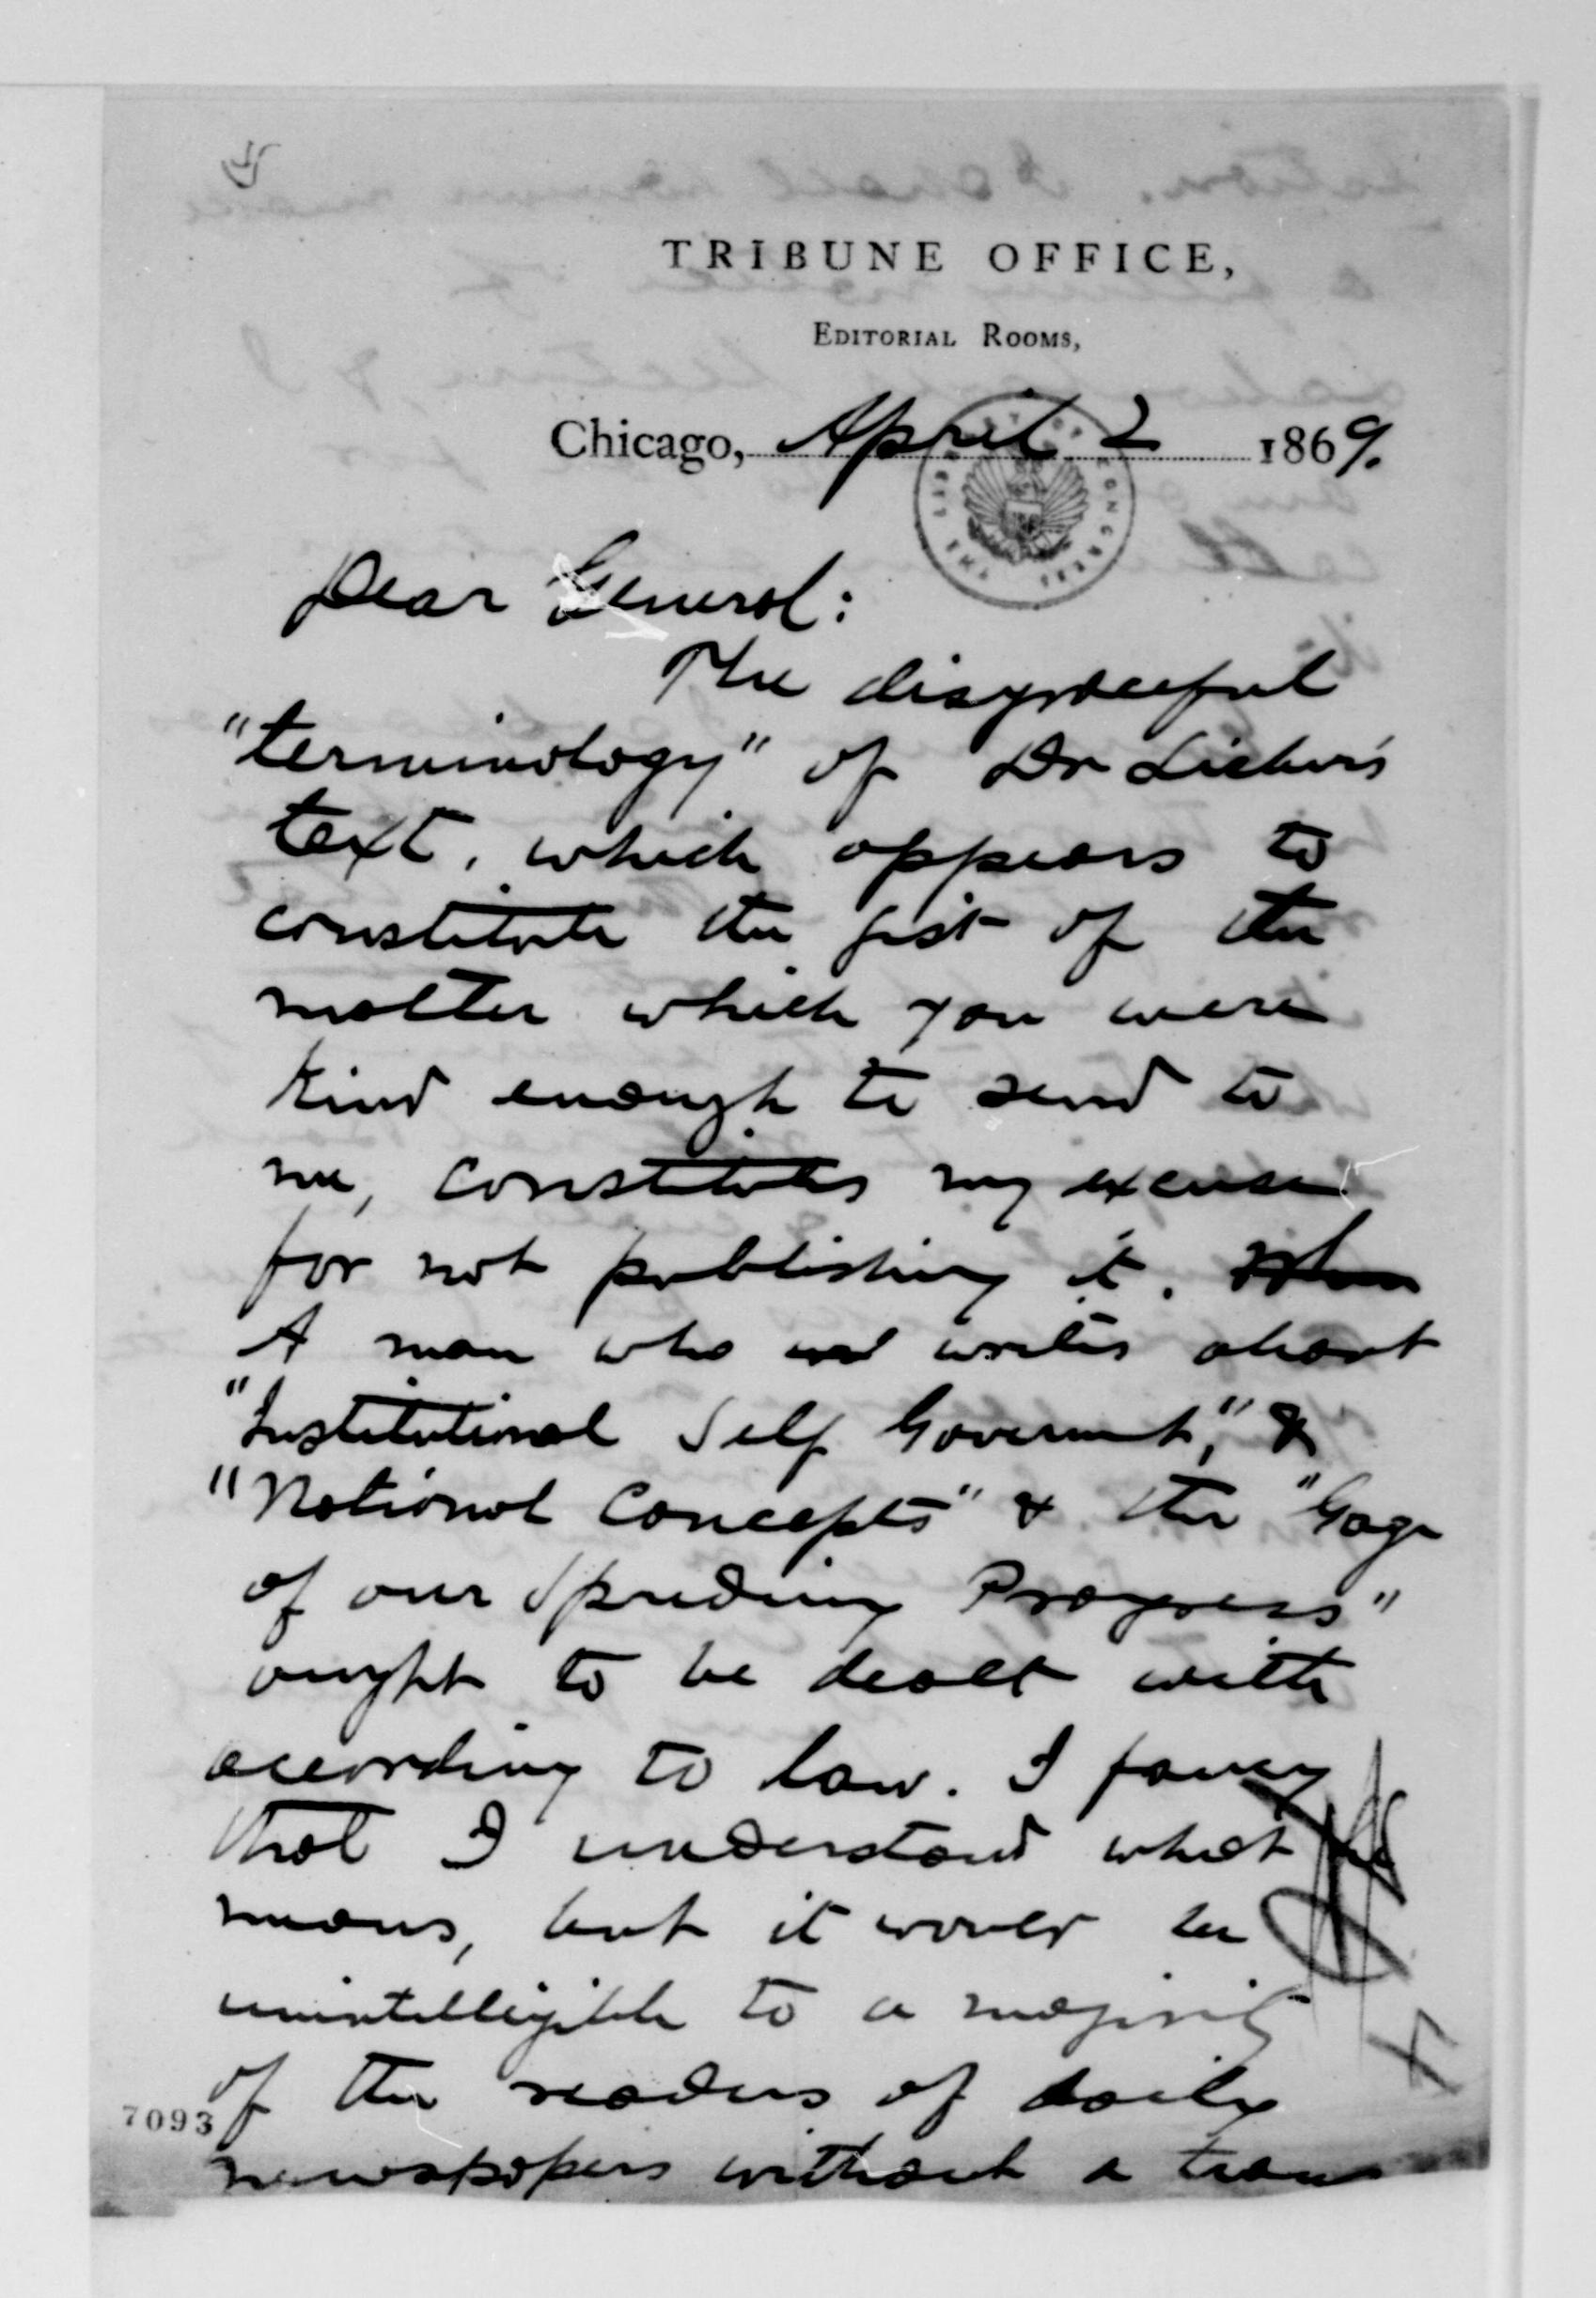 TRIBUNE OFFICE,
EDITORIAL ROOMS,
Chicago, April 2 1869.
THE LIBRARY OF CONGRESS
Dear General:
The disgraceful
"terminology" of Dr Lieber's
text, which appears to
constitute the gist of the
matter which you were
kind enough to send to
me, constitutes my excuse
for not publishing it. When
A man who writes about
"Institutional Self Government," &
"National Concepts" & the "Gage
of our Spreading Progress"
ought to be dealt with
according to law. I fancy
that I understand what he
means, but it would be
unintelligible to a majority
of the readers of daily
newspapers without a trans
7093